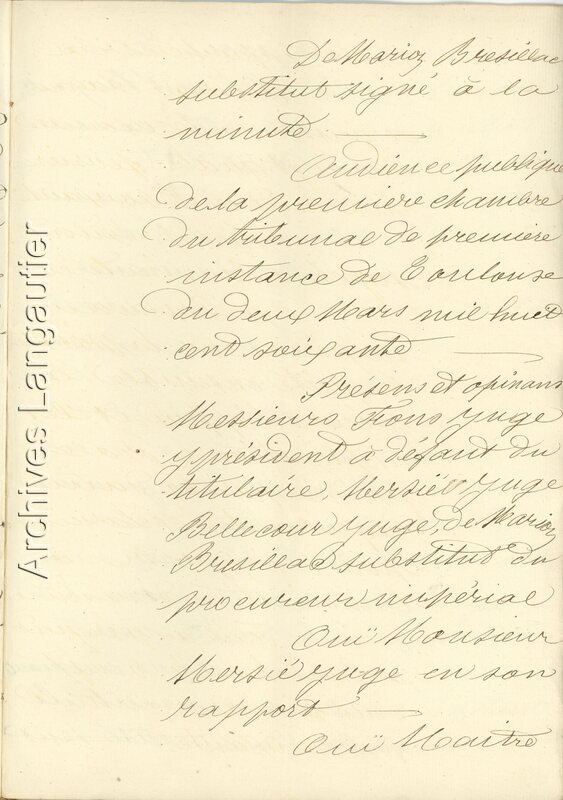 De Marion Bresillac
substitut signé à la
minute
Audience publique
de la premiere chambre
du tribunal de premiere
instance de Toulouse
du deux Mars mil huit
cent soixante
Présens et opinans
Messieurs Fions juge
y président à défaut du
titulaire, Mersié juge
Bellecour juge, de Marion
Bresillac substitut du
procureur impérial
Ouï Monsieur
Mersié juge en son
rapport
Ouï Maitre
Archives Langautier